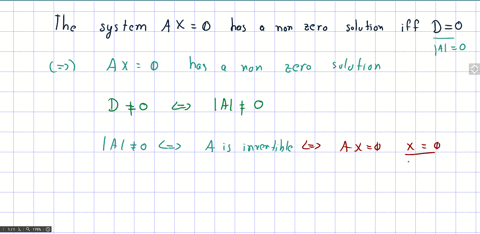 The system AX = 0 has a non zero solution iff D = 0
|A| = 0
(=>) AX = 0 has a non zero solution
D ≠ 0 <=> |A| ≠ 0
|A| ≠ 0 <=> A is invertible <=> AX = 0 x = 0